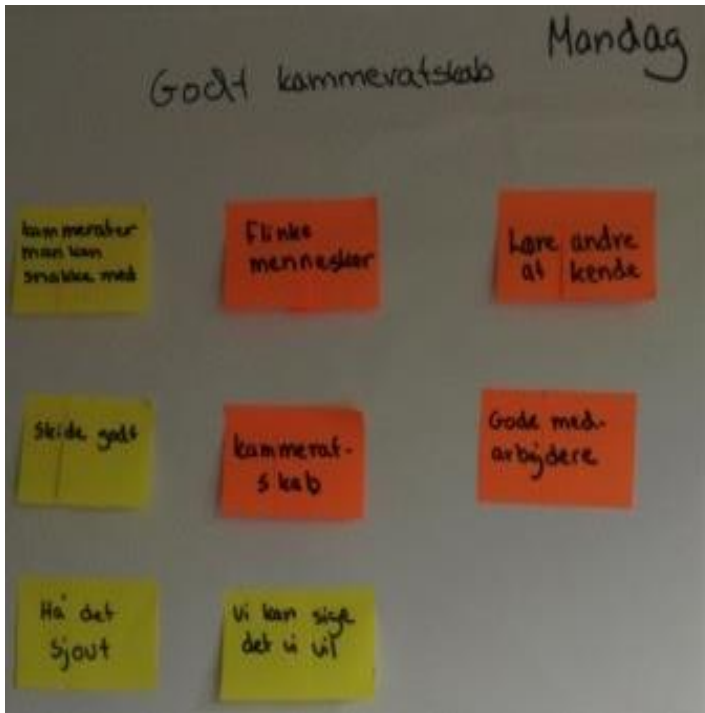 Mandag
Godt kammeratskab
kammerater
man kan
snakke med
Flinke
mennesker
Lære andre
at kende
Skide godt
kammerat-
skab
Gode med-
arbejdere
Ha det
sjout
Vi kan sige
det vi vil